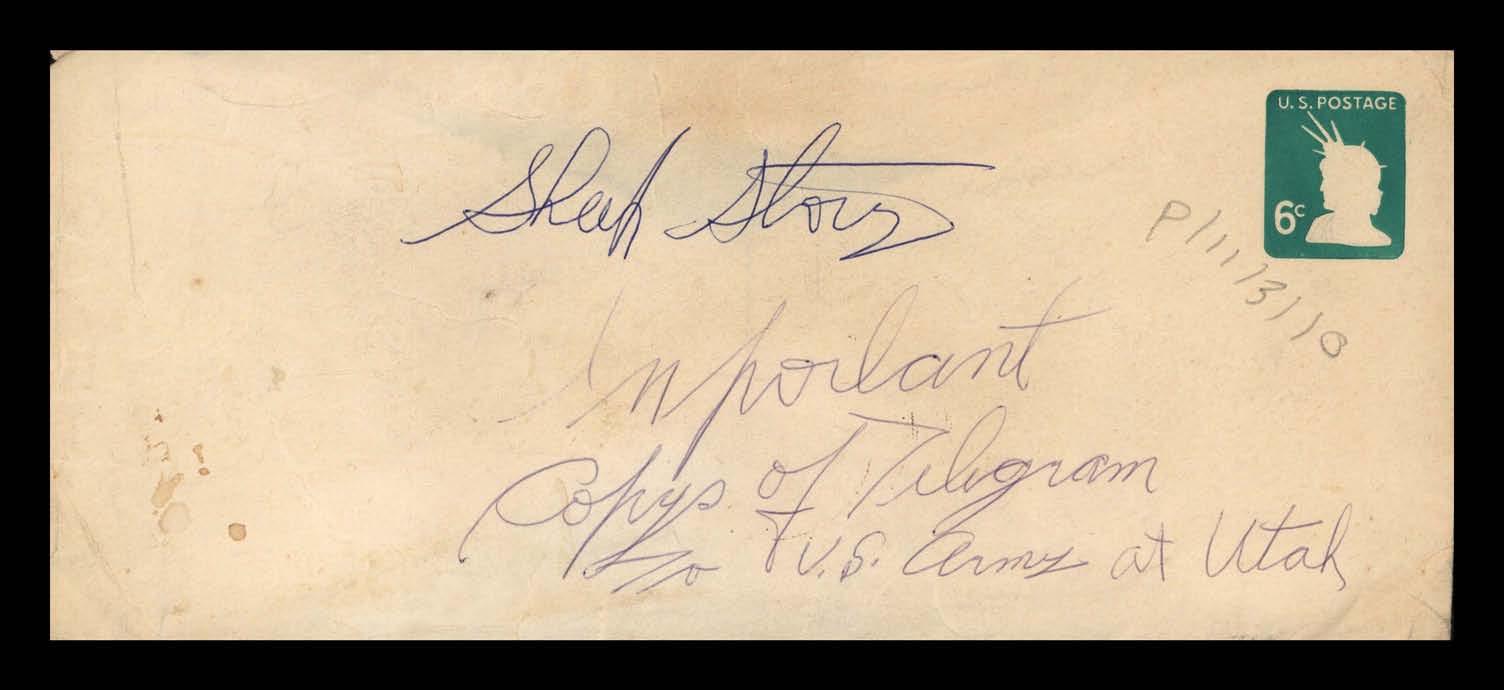 U.S. POSTAGE
6c
P/11/3/10
Sheep Story
Inportant
Copys of Telegram
to U.S. Army at Utah